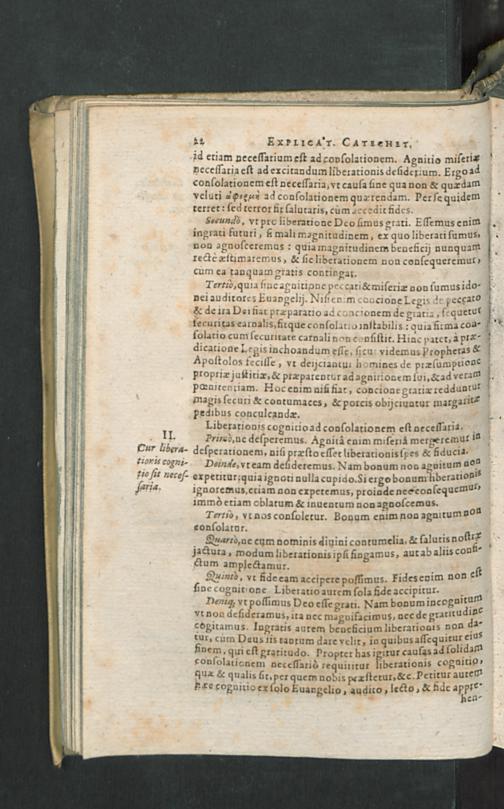 22 EXPLICAT. CATECHET.
id etiam necessarium est ad consolationem. Agnitio miseriæ
necessaria est ad excitandum liberationis desiderium. Ergo ad
consolationem est necessaria, vt causa sine qua non & quædam
veluti ἀφορμὴ ad consolationem quærendam. Per se quidem
terret: sed terror fit salutaris, cùm accedit fides.
Secundò, vt pro liberatione Deo simus grati. Essemus enim
ingrati futuri, si mali magnitudinem, ex quo liberati sumus,
non agnosceremus: quia magnitudinem beneficij nunquam
rectè æstimaremus, & sic liberationem non consequeremur,
cum ea tanquam gratis contingat.
Tertiò, quia sine agnitione peccati & miseriæ non sumus ido-
nei auditores Euangelij. Nisi enim concione Legis de peccato
& de ira Dei fiat præparatio ad concionem de gratia, sequetur
securitas carnalis, fitque consolatio instabilis: quia firma con-
solatio cum securitate carnali non consistit. Hinc patet, à præ-
dicatione Legis inchoandum esse, sicut videmus Prophetas &
Apostolos fecisse, vt deijciantur homines de præsumptione
propriæ justitiæ, & præparentur ad agnitionem sui, & ad veram
pœnitentiam. Hoc enim nisi fiat, concione gratiæ redduntur
magis securi & contumaces, & porcis objiciuntur margaritæ
pedibus conculcandæ.
Liberationis cognitio ad consolationem est necessaria.
II.
Cur libera-
tionis cogni-
tio sit neces-
saria.
Primò, ne desperemus. Agnitâ enim miseriâ mergeremur in
desperationem, nisi præsto esset liberationis spes & fiducia.
Deinde, vt eam desideremus. Nam bonum non agnitum non
expetitur: quia ignoti nulla cupido. Si ergo bonum liberationis
ignoremus, etiam non expetemus, proinde nec consequemur,
immò etiam oblatum & inuentum non agnoscemus.
Tertiò, vt nos consoletur. Bonum enim non agnitum non
consolatur.
Quartò, ne cum nominis diuini contumelia, & salutis nostræ
jactura, modum liberationis ipsi fingamus, aut ab aliis confi-
ctum amplectamur.
Quintò, vt fide eam accipere possimus. Fides enim non est
sine cognitione. Liberatio autem sola fide accipitur.
Deniq; vt possimus Deo esse grati. Nam bonum incognitum
vt non desideramus, ita nec magnifacimus, nec de gratitudine
cogitamus. Ingratis autem beneficium liberationis non da-
tur, cùm Deus iis tantum dare velit, in quibus assequitur eius
finem, qui est gratitudo. Propter has igitur causas ad solidam
consolationem necessariò requiritur liberationis cognitio,
quæ & qualis sit, per quem nobis præstetur, &c. Petitur autem
hæc cognitio ex solo Euangelio, audito, lecto, & fide appre-
hen-